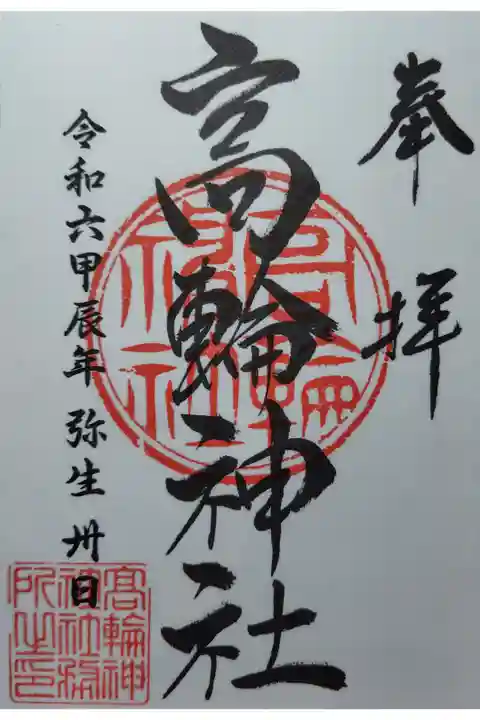 奉拝
高輪神社
令和六甲辰年 弥生 卅日
高輪神社
高輪神社務所之印